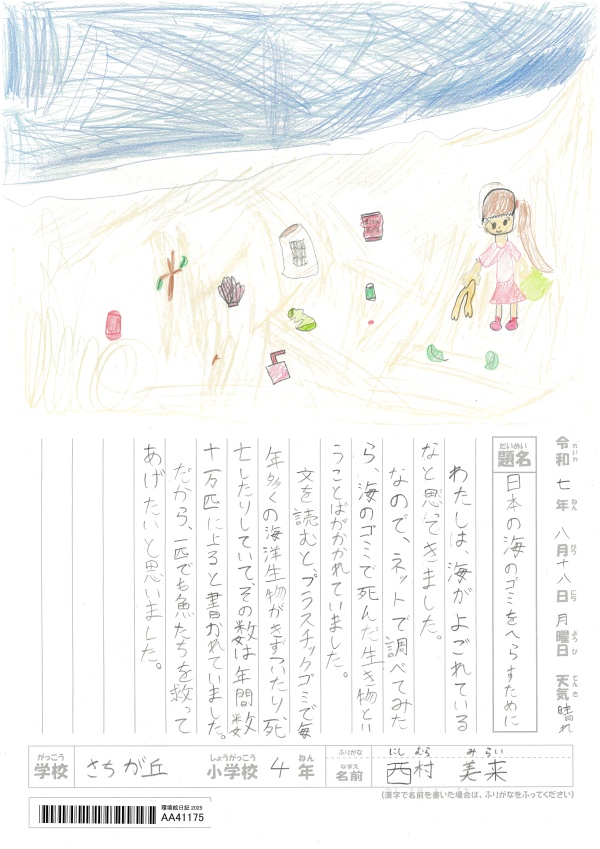 令和七年八月十八日月曜日 天気晴れ
れいわ ねん がつ にち ようび てんき
だいめい
題名 日本の海のゴミをへらすために
わたしは、海がよごれている
なと思ってきました。
なので、ネットで調べてみた
ら、海のゴミで死んだ生き物とい
うことばがかがれていました。
文を読むと、プラスチックゴミで毎
年多くの海洋生物がきずついたり、死
亡したりしていて、その数は年間数
十万匹に上ると書かれていました。
だから、一匹でも魚たちを救って
あげたいと思いました。
がっこう しょうがっこう ねん
学校 さちが丘 小学校 4年
ふりがな にし むら み らい
なまえ
名前 西村 美来
(漢字で名前を書いた場合は、ふりがなをふってください)
環境絵日記 2025
AA41175